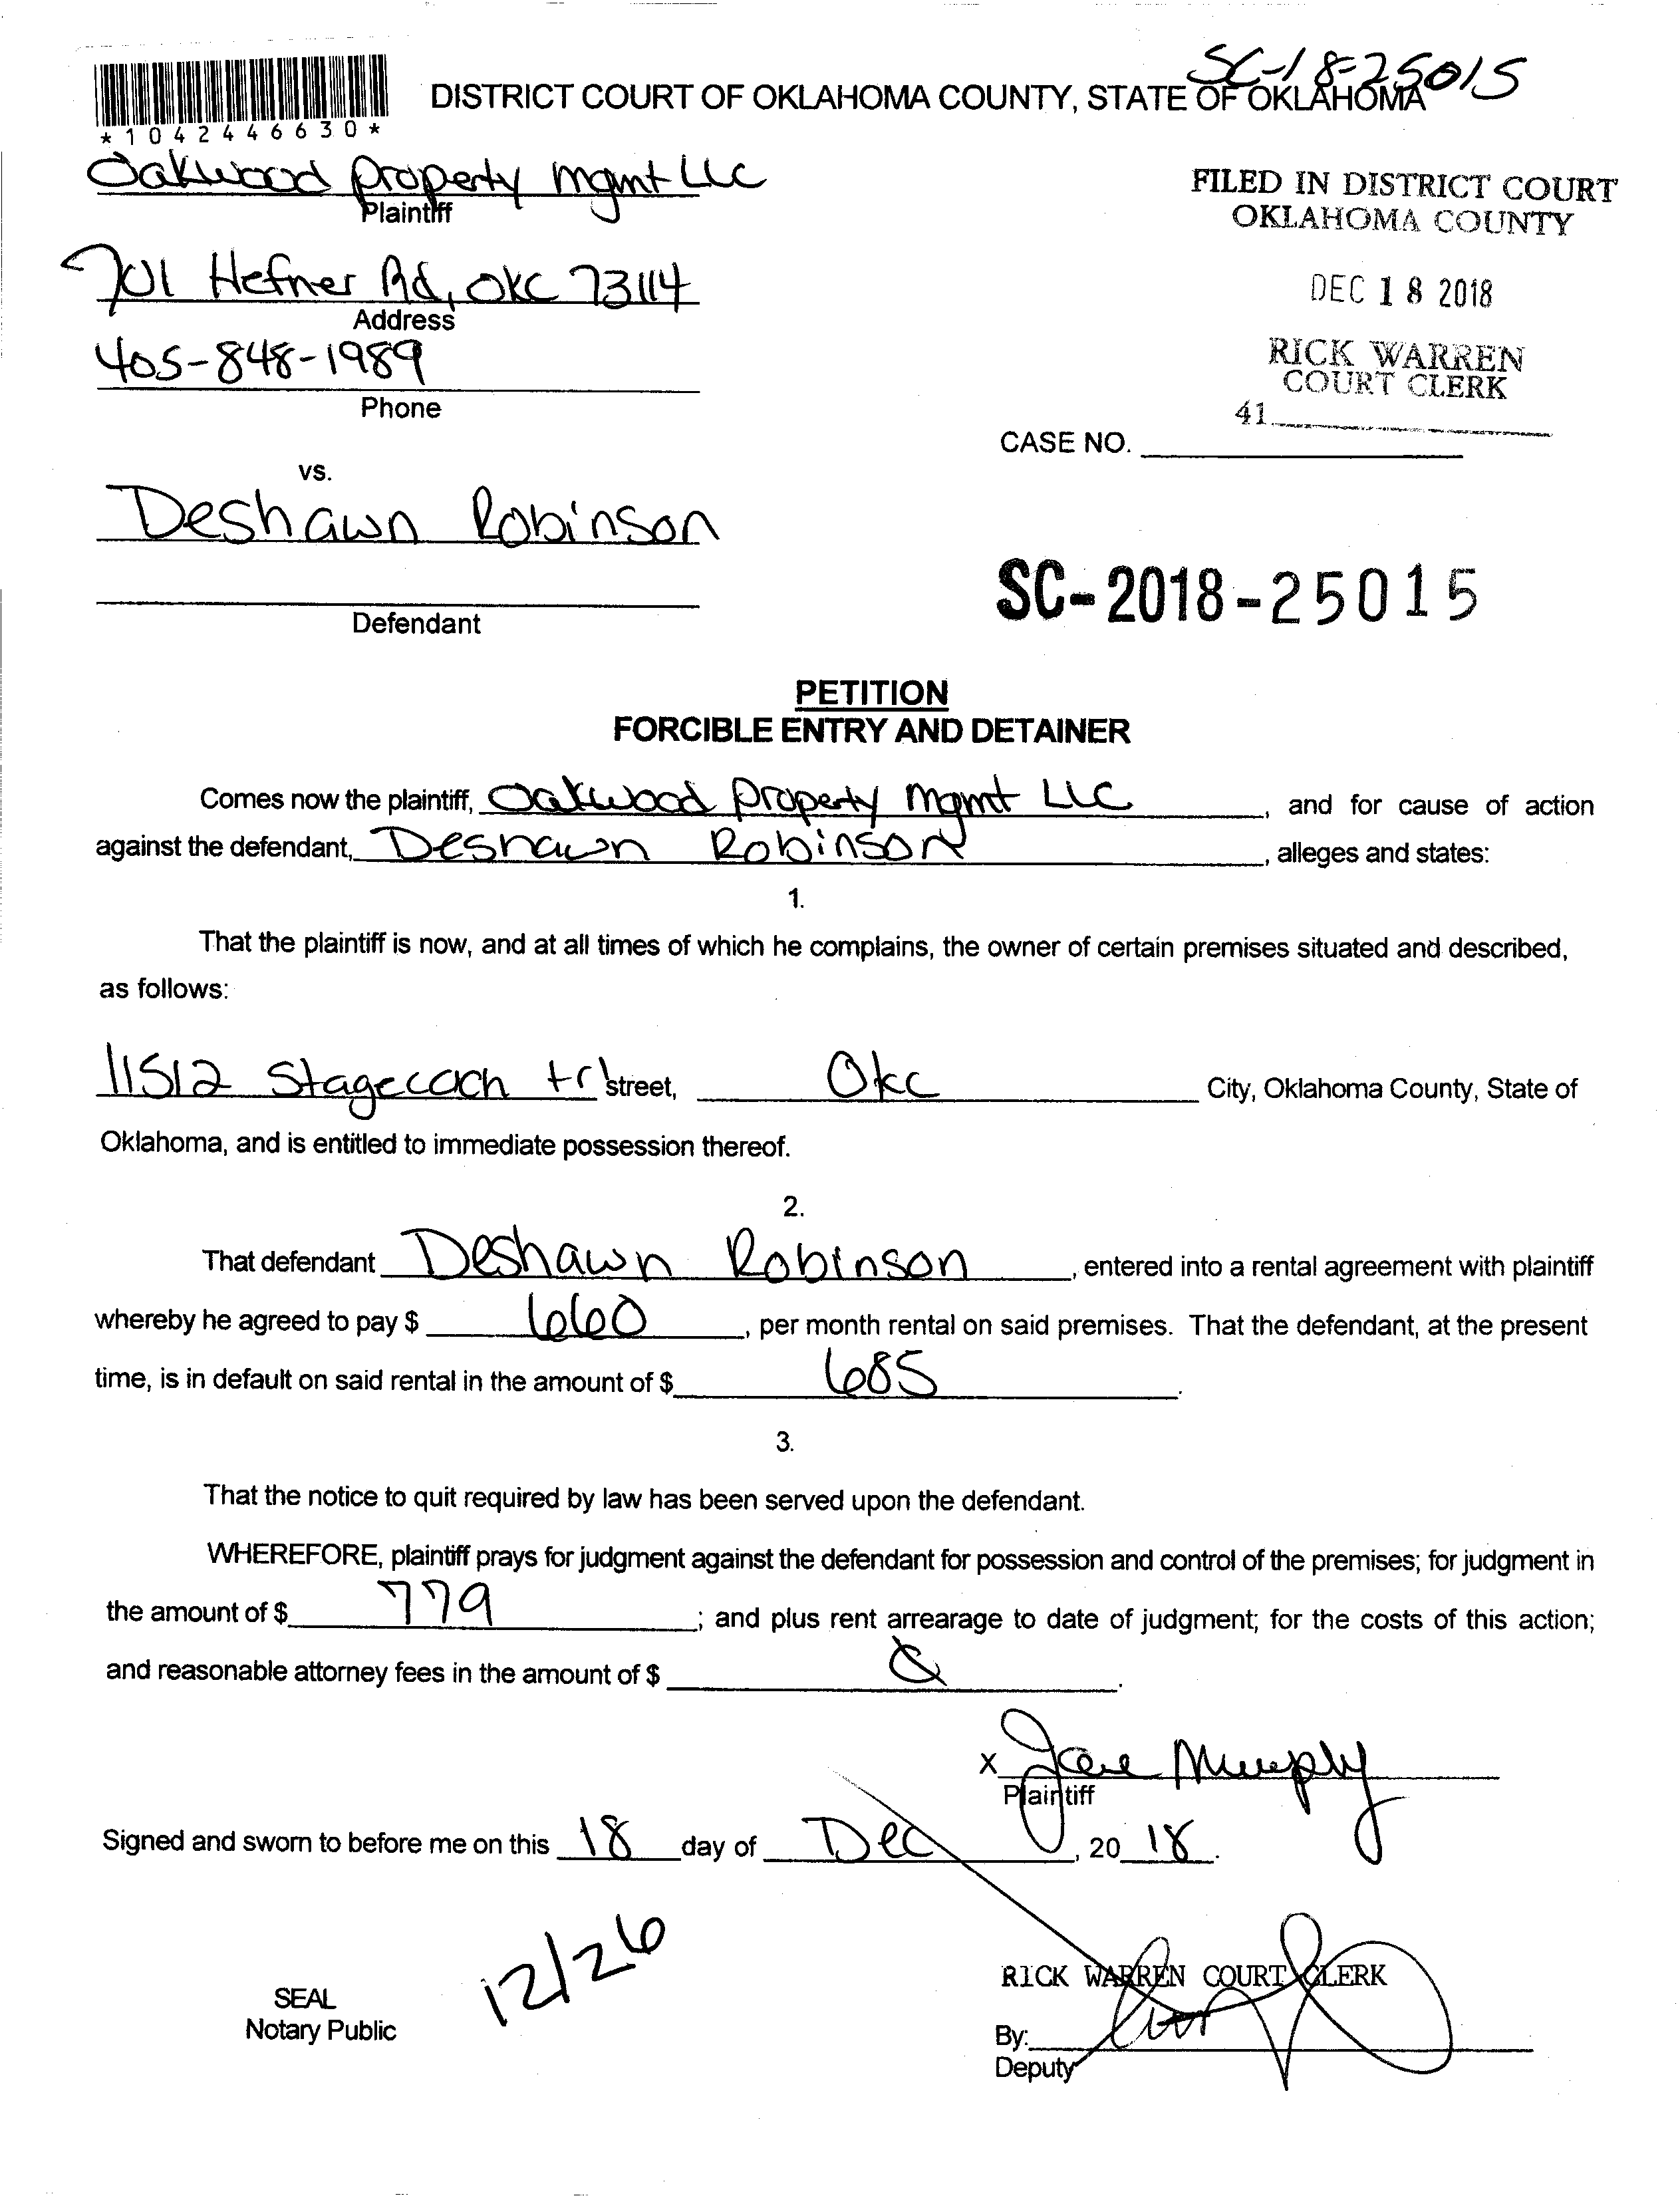 SC-18-25015
DISTRICT COURT OF OKLAHOMA COUNTY, STATE OF OKLAHOMA
*1042446630*
Oakwood property mgmt LLC
Plaintiff
FILED IN DISTRICT COURT
OKLAHOMA COUNTY
701 Hefner Rd, OKC 73114
Address
DEC 18 2018
405-848-1989
Phone
RICK WARREN
COURT CLERK
41
CASE NO.
vs.
Deshawn Robinson
Defendant
SC-2018-25015
PETITION
FORCIBLE ENTRY AND DETAINER
Comes now the plaintiff, Oakwood property mgmt LLC, and for cause of action
against the defendant, Deshawn Robinson, alleges and states:
1.
That the plaintiff is now, and at all times of which he complains, the owner of certain premises situated and described,
as follows:
11512 Stagecoach trl street, Okc City, Oklahoma County, State of
Oklahoma, and is entitled to immediate possession thereof.
2.
That defendant Deshawn Robinson, entered into a rental agreement with plaintiff
whereby he agreed to pay $ 660, per month rental on said premises. That the defendant, at the present
time, is in default on said rental in the amount of $ 685.
3.
That the notice to quit required by law has been served upon the defendant.
WHEREFORE, plaintiff prays for judgment against the defendant for possession and control of the premises; for judgment in
the amount of $ 779; and plus rent arrearage to date of judgment; for the costs of this action;
and reasonable attorney fees in the amount of $ .
x Murphy
Plaintiff
Signed and sworn to before me on this 18 day of Dec, 20 18.
12/26
SEAL
Notary Public
RICK WARREN COURT CLERK
By:
Deputy